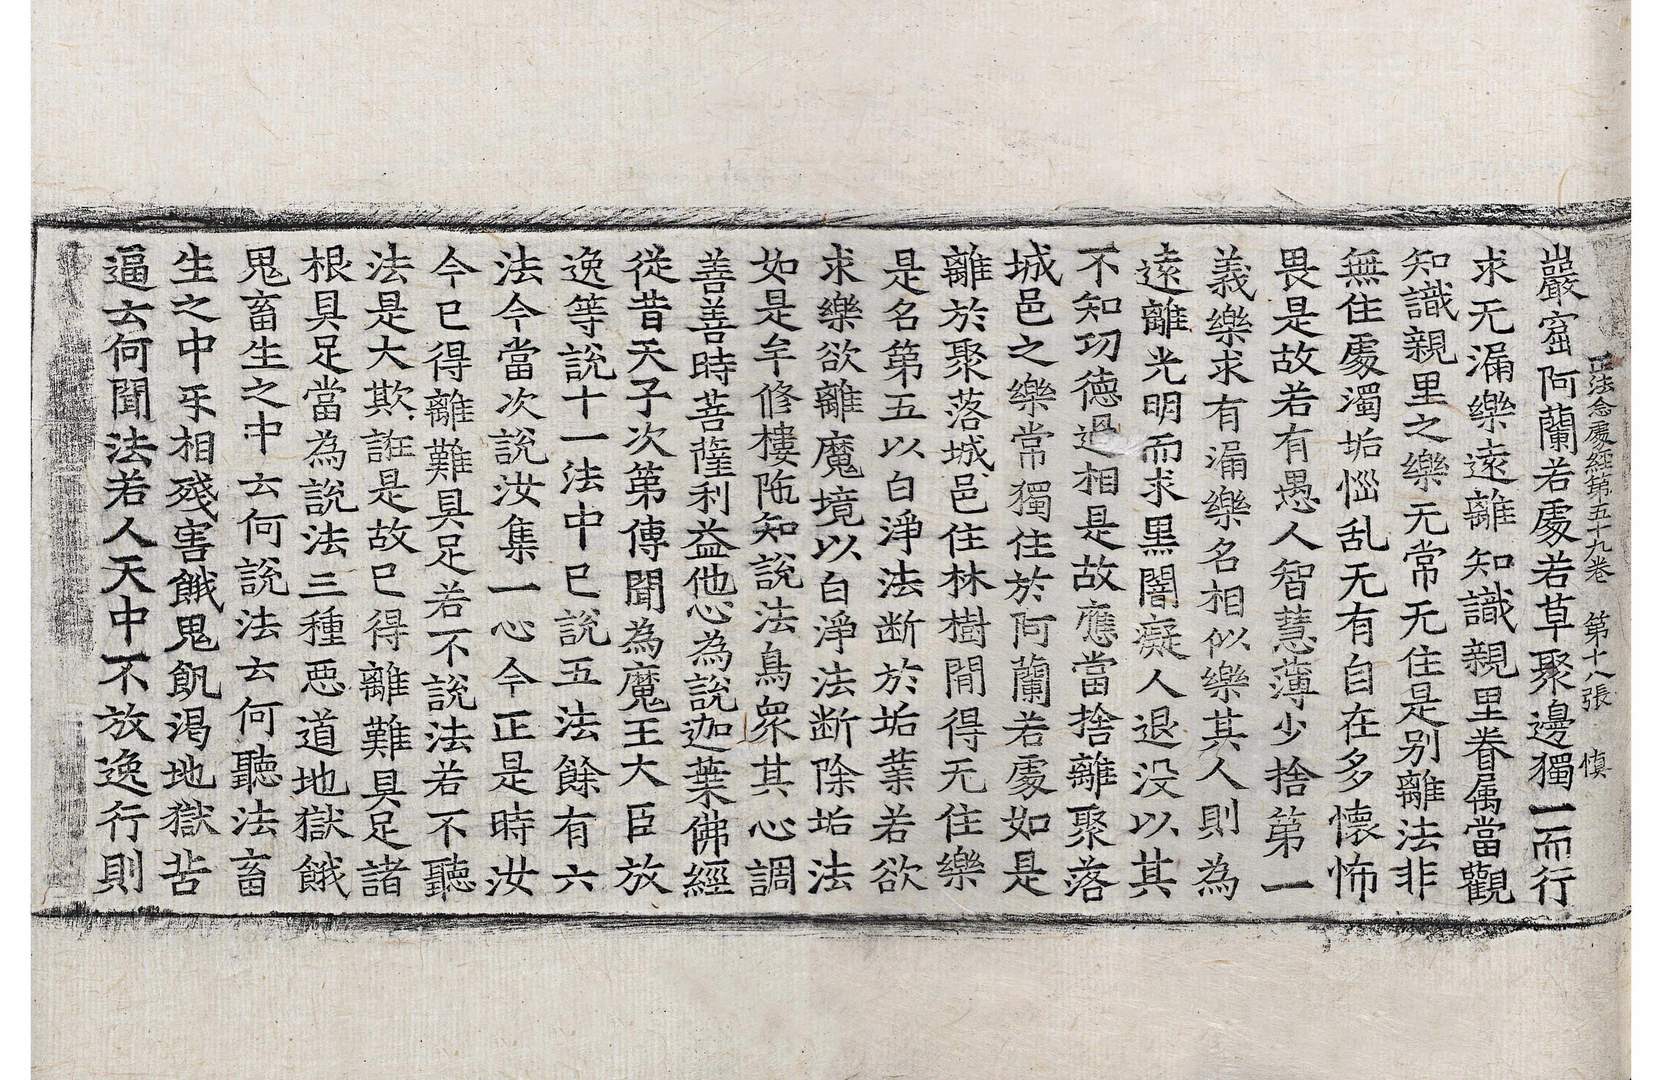 正法念處経第五十九卷　第十八張　慎
巖窟阿蘭若處若草聚邊獨一而行
求无漏樂遠離知識親里眷属當觀
知識親里之樂无常无住是别離法非
無住處濁垢惱乱无有自在多懷怖
畏是故若有愚人智慧薄少捨第一
義樂求有漏樂名相似樂其人則為
遠離光明而求黒闇癡人退没以其
不知功德過相是故應當捨離聚落
城邑之樂常獨住於阿蘭若處如是
離於聚落城邑住林樹間得无住樂
是名第五以白淨法断於垢業若欲
求樂欲離魔境以白淨法断除垢法
如是牟修樓陁知說法鳥衆其心調
善善時菩薩利益他心為說迦葉佛經
從昔天子次第傳聞為魔王大臣放
逸等說十一法中已說五法餘有六
法今當次說汝集一心今正是時汝
今已得離難具足若不說法若不聽
法是大欺誑是故已得離難具足諸
根具足當為說法三種悪道地獄餓
鬼畜生之中云何說法云何聽法畜
生之中㸦相殘害餓鬼飢渴地獄苦
逼云何聞法若人天中不放逸行則